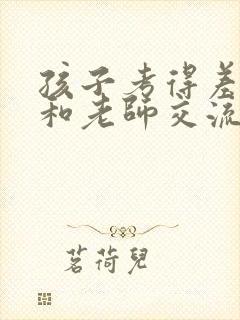 孩子考得差
和老師交流
茗荷兒